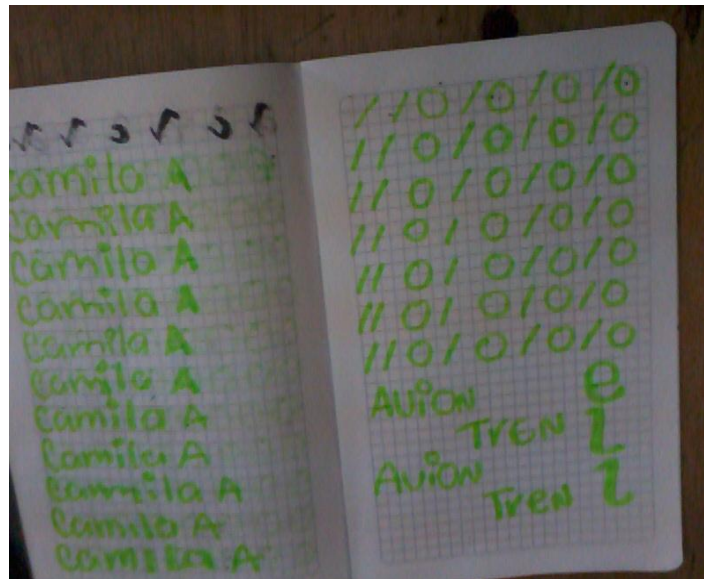 Camila A
Camila A
Camila A
Camila A
Camila A
Camila A
Camila A
Camila A
Camila A
Camila A
Camila A
//0/0/0/0
//0/0/0/0
//0/0/0/0
//0/0/0/0
//0/0/0/0
//0/0/0/0
//0/0/0/0
AViON e
TrEN
AViON
TreN